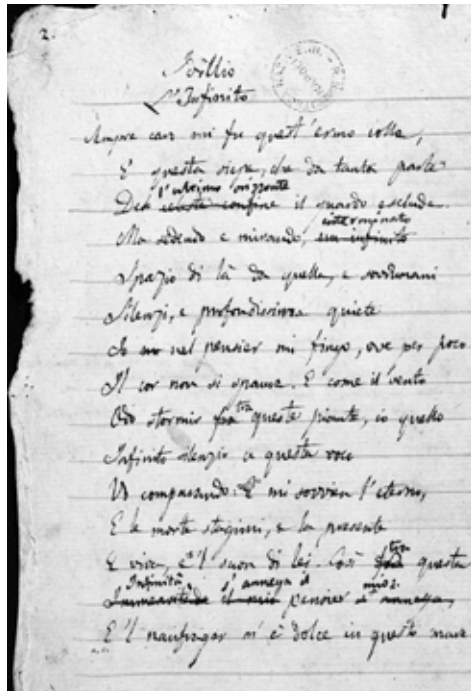 2.
Idillio
L'Infinito
Sempre caro mi fu quest'ermo colle,
E questa siepe, che da tanta parte
l'ultimo orizzonte
Del celeste confine il guardo esclude.
interminato
Ma sedendo e mirando, un infinito
Spazio di là da quella, e sovrumani
Silenzi, e profondissima quiete
Io nel pensier mi fingo, ove per poco
Il cor non si spaura. E come il vento
tra
Odo stormir fra queste piante, io quello
Infinito silenzio a questa voce
Vo comparando: E mi sovvien l'eterno,
E le morte stagioni, e la presente
tra
E viva, e 'l suon di lei. Così fra questa
Infinità s'annega il mio
Immensitade il mio pensier s'annega,
E 'l naufragar m'è dolce in questo mare